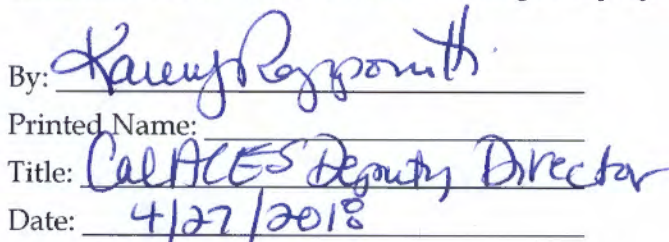 By: Karen
Printed Name:
Title: CalACES Deputy Director
Date: 4/27/2018